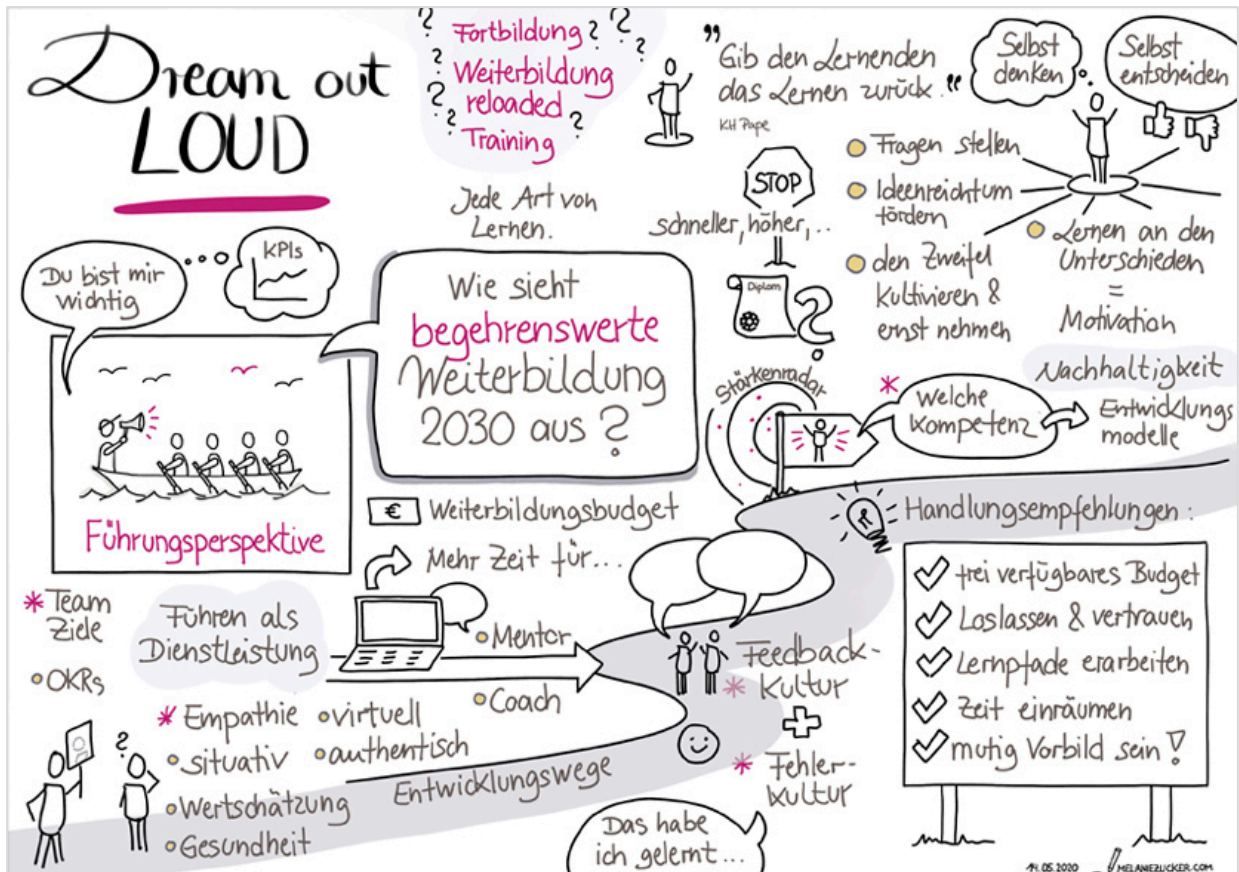 Dream out
LOUD
Fortbildung
Weiterbildung
reloaded
Training
Jede Art von
Lernen.
"Gib den Lernenden
das Lernen zurück."
KH Pape
Selbst
denken
Selbst
entscheiden
Fragen stellen
Ideenreichtum
fördern
den Zweifel
kultivieren &
ernst nehmen
Lernen an den
Unterschieden
=
Motivation
STOP
schneller, höher, ..
Diplom
?
Du bist mir
wichtig
KPIs
Führungsperspektive
Wie sieht
begehrenswerte
Weiterbildung
2030 aus?
Stärkenradar
* Welche
Kompetenz
Nachhaltigkeit
Entwicklungs
modelle
€ Weiterbildungsbudget
Mehr Zeit für...
* Team
Ziele
OKRs
Führen als
Dienstleistung
Mentor
Coach
* Empathie
situativ
Wertschätzung
Gesundheit
virtuell
authentisch
?
Entwicklungswege
Feedback-
* Kultur
+
* Fehler-
kultur
Das habe
ich gelernt...
Handlungsempfehlungen:
frei verfügbares Budget
Loslassen & vertrauen
Lernpfade erarbeiten
Zeit einräumen
mutig Vorbild sein!
14.05.2020
MELANIEZUCKER.COM